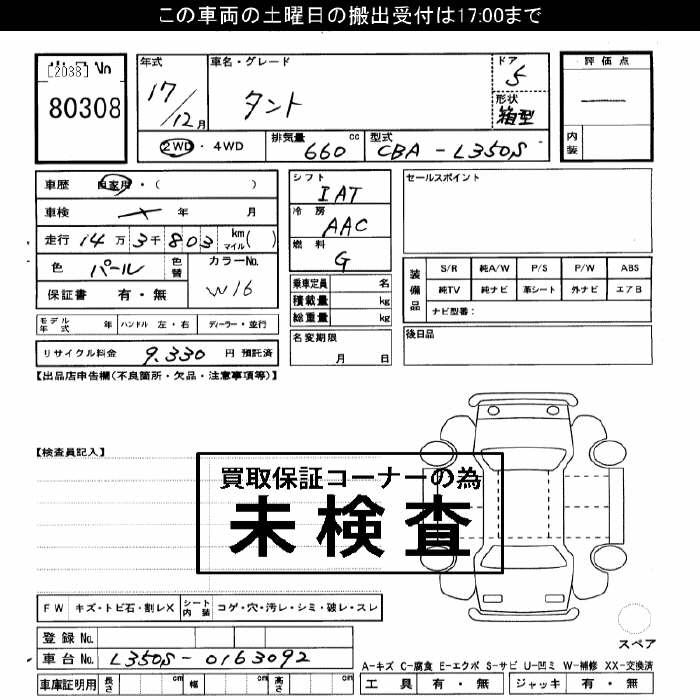 この車両の土曜日の搬出受付は17:00まで
[2038] No
80308
年式
17/12月
車名・グレード
タント
ドア
5
形状
箱型
評価点
内装
2WD・4WD
排気量 660 cc
型式 CBA-L350S
車歴 自家用・( )
車検 年 月
走行 14万3千803 km マイル( )
色 パール 色替
カラーNo. W16
保証書 有・無
シフト IAT
冷房 AAC
燃料 G
乗車定員 名
積載量 kg
総重量 kg
セールスポイント
装備品
S/R 純A/W P/S P/W ABS
純TV 純ナビ 革シート 外ナビ エアB
ナビ型番:
モデル年式 年 ハンドル 左・右 ディーラー・並行
リサイクル料金 9,330 円 預託済
名変期限
月 日
後日品
【出品店申告欄(不良箇所・欠品・注意事項等)】
【検査員記入】
買取保証コーナーの為
未検査
FW キズ・トビ石・割レX シート内装 コゲ・穴・汚レ・シミ・破レ・スレ
登録No.
車台No. L350S-0163092
車庫証明用 長さ cm 幅 cm 高さ cm
スペア
A-キズ C-腐食 E-エクボ S-サビ U-凹ミ W-補修 XX-交換済
工具 有・無 ジャッキ 有・無